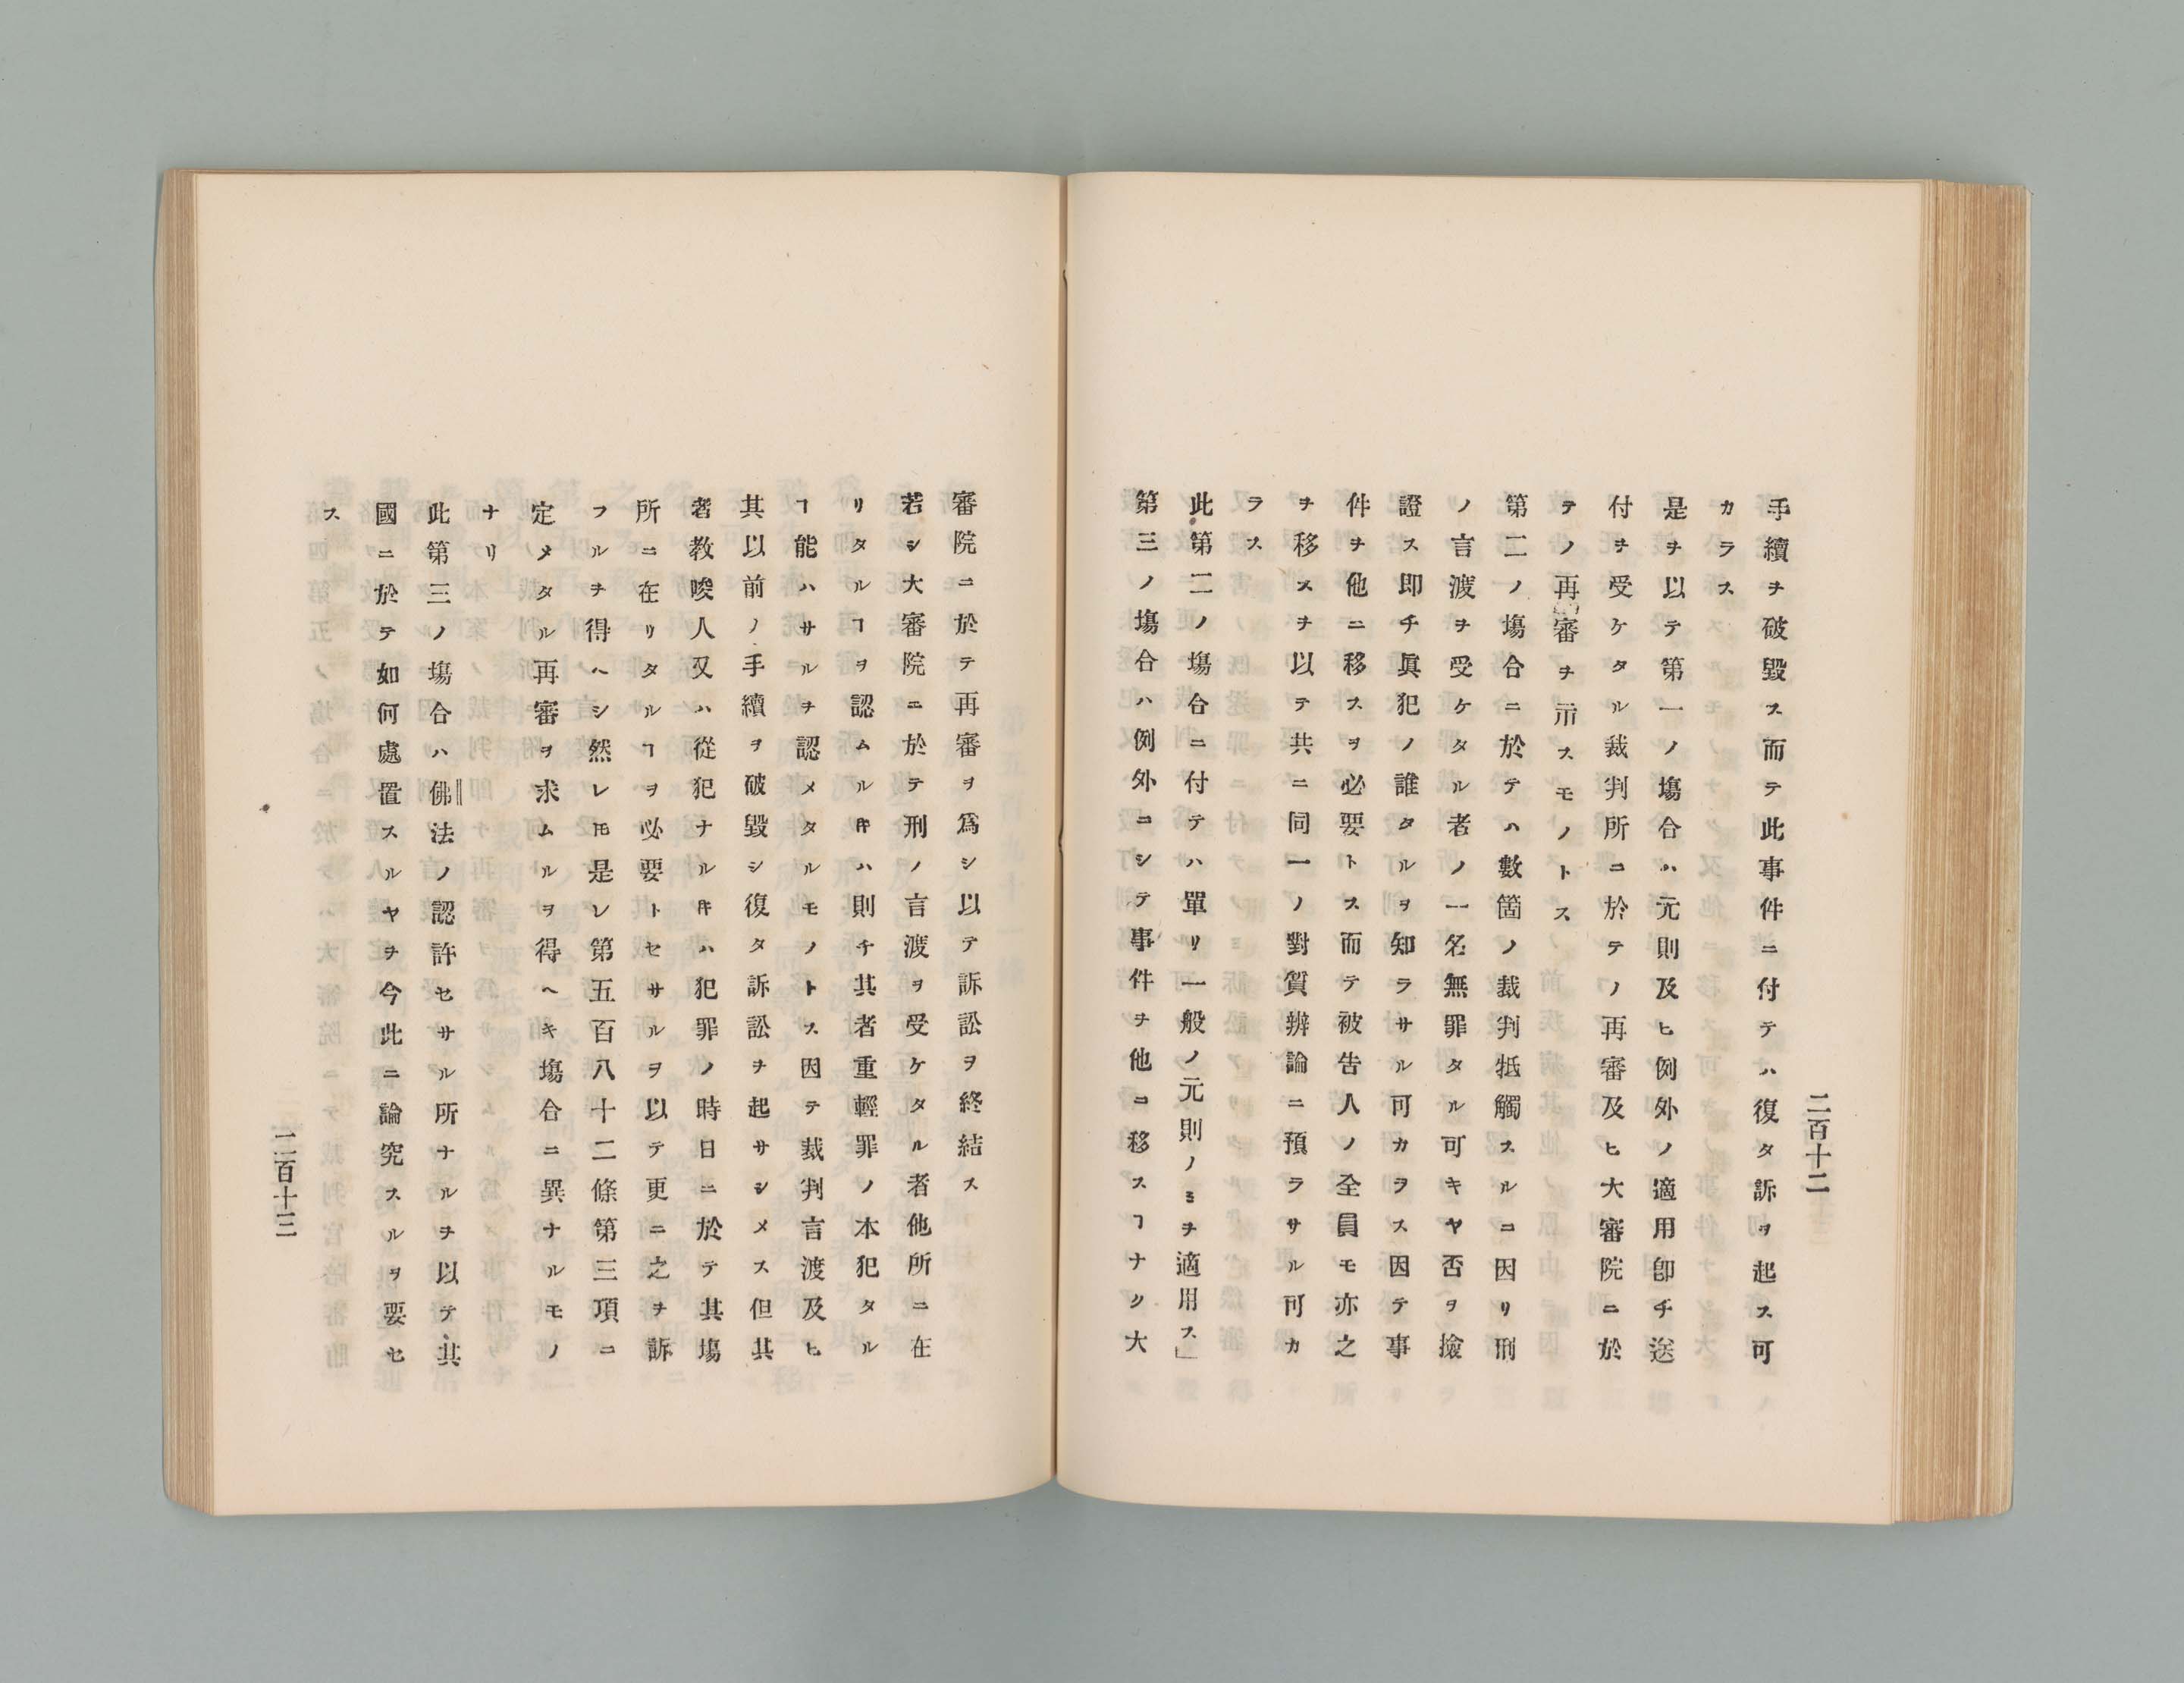 二百十二
手續ヲ破毀ス而テ此事件ニ付テハ復タ訴ヲ起ス可
カラス
是ヲ以テ第一ノ塲合ハ元則及ヒ例外ノ適用卽チ送
付ヲ受ケタル裁判所ニ於テノ再審及ヒ大審院ニ於
テノ再審ヲ示スモノトス
第二ノ塲合ニ於テハ數箇ノ裁判牴觸スルニ因リ刑
ノ言渡ヲ受ケタル者ノ一名無罪タル可キヤ否ヲ撿
證ス卽チ眞犯ノ誰タルヲ知ラサル可カラス因テ事
件ヲ他ニ移スヲ必要トス而テ被告人ノ全員モ亦之
ヲ移スヲ以テ共ニ同一ノ對質辨論ニ預ラサル可カ
ラス
此第二ノ塲合ニ付テハ單リ一般ノ元則ノミヲ適用ス」
第三ノ塲合ハ例外ニシテ事件ヲ他ニ移スヿナク大
審院ニ於テ再審ヲ爲シ以テ訴訟ヲ終結ス
若シ大審院ニ於テ刑ノ言渡ヲ受ケタル者他所ニ在
リタルヿヲ認ムルキハ則チ其者重輕罪ノ本犯タル
ヿ能ハサルヲ認メタルモノトス因テ裁判言渡及ヒ
其以前ノ手續ヲ破毀シ復タ訴訟ヲ起サシメス但其
者敎唆人又ハ從犯ナルキハ犯罪ノ時日ニ於テ其塲
所ニ在リタルヿヲ必要トセサルヲ以テ更ニ之ヲ訴
フルヲ得ヘシ然レ𪜈是レ第五百八十二條第三項ニ
定メタル再審ヲ求ムルヲ得ヘキ塲合ニ異ナルモノ
ナリ
此第三ノ塲合ハ佛法ノ認許セサル所ナルヲ以テ其
國ニ於テ如何處置スルヤヲ今此ニ論究スルヲ要セ
ス
二百十三